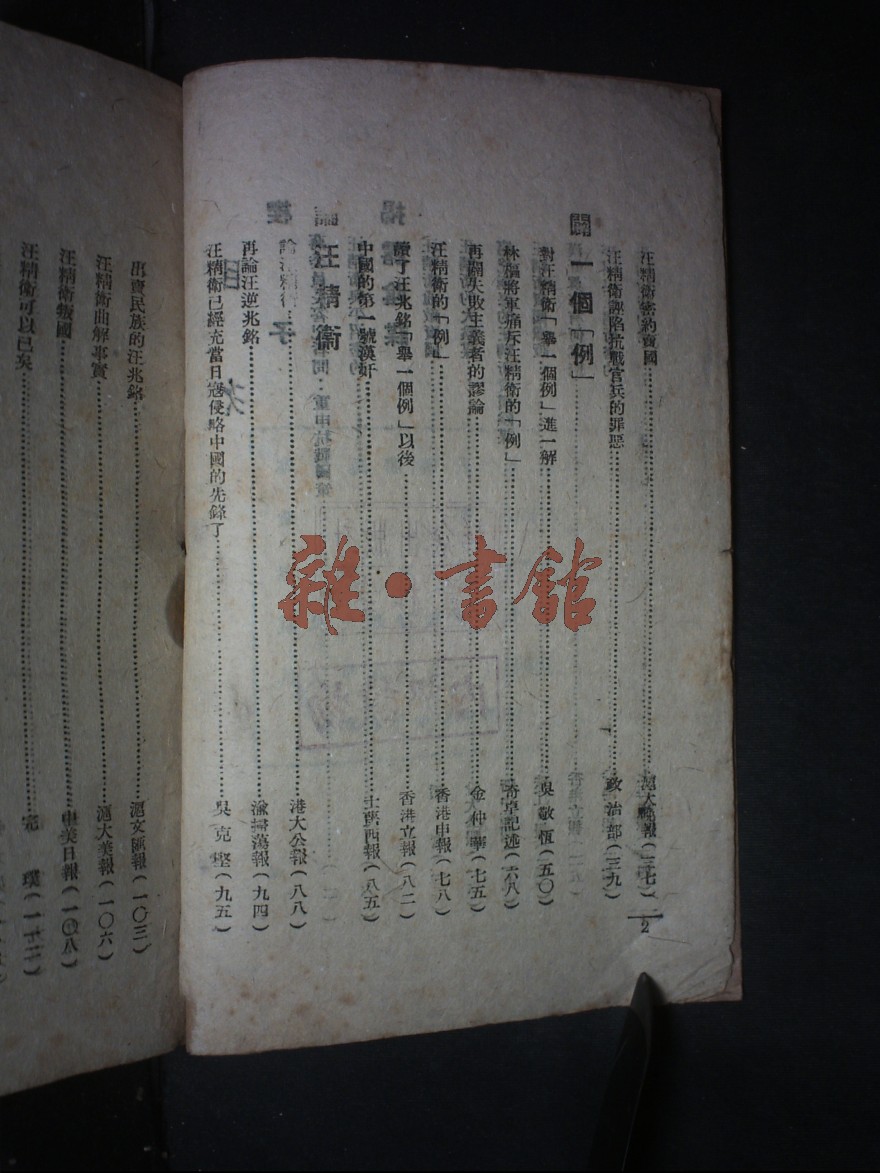 汪精衛密約賣國……滬大晚報(三七)
汪精衛誣陷抗戰官兵的罪惡……政治部(三九)
闢一個「例」
對汪精衛「舉一個例」進一解……吳敬恆(五〇)
林蘊將軍痛斥汪精衛的「例」……奇卓記述(六八)
再闢失敗主義者的謬論……金仲華(七五)
汪精衛的「例」……香港申報(七八)
讀了汪兆銘「舉一個例」以後……香港立報(八二)
中國的第一號漢奸……士蔑西報(八五)
論汪精衛
論汪精衛……港大公報(八八)
再論汪逆兆銘……渝掃蕩報(九四)
汪精衛已經充當日寇侵略中國的先鋒了……吳克堅(九五)
2
雜·書館
出賣民族的汪兆銘……滬文匯報(一〇三)
汪精衛曲解事實……滬大美報(一〇六)
汪精衛叛國……申美日報(一〇八)
汪精衛可以已矣……完璞